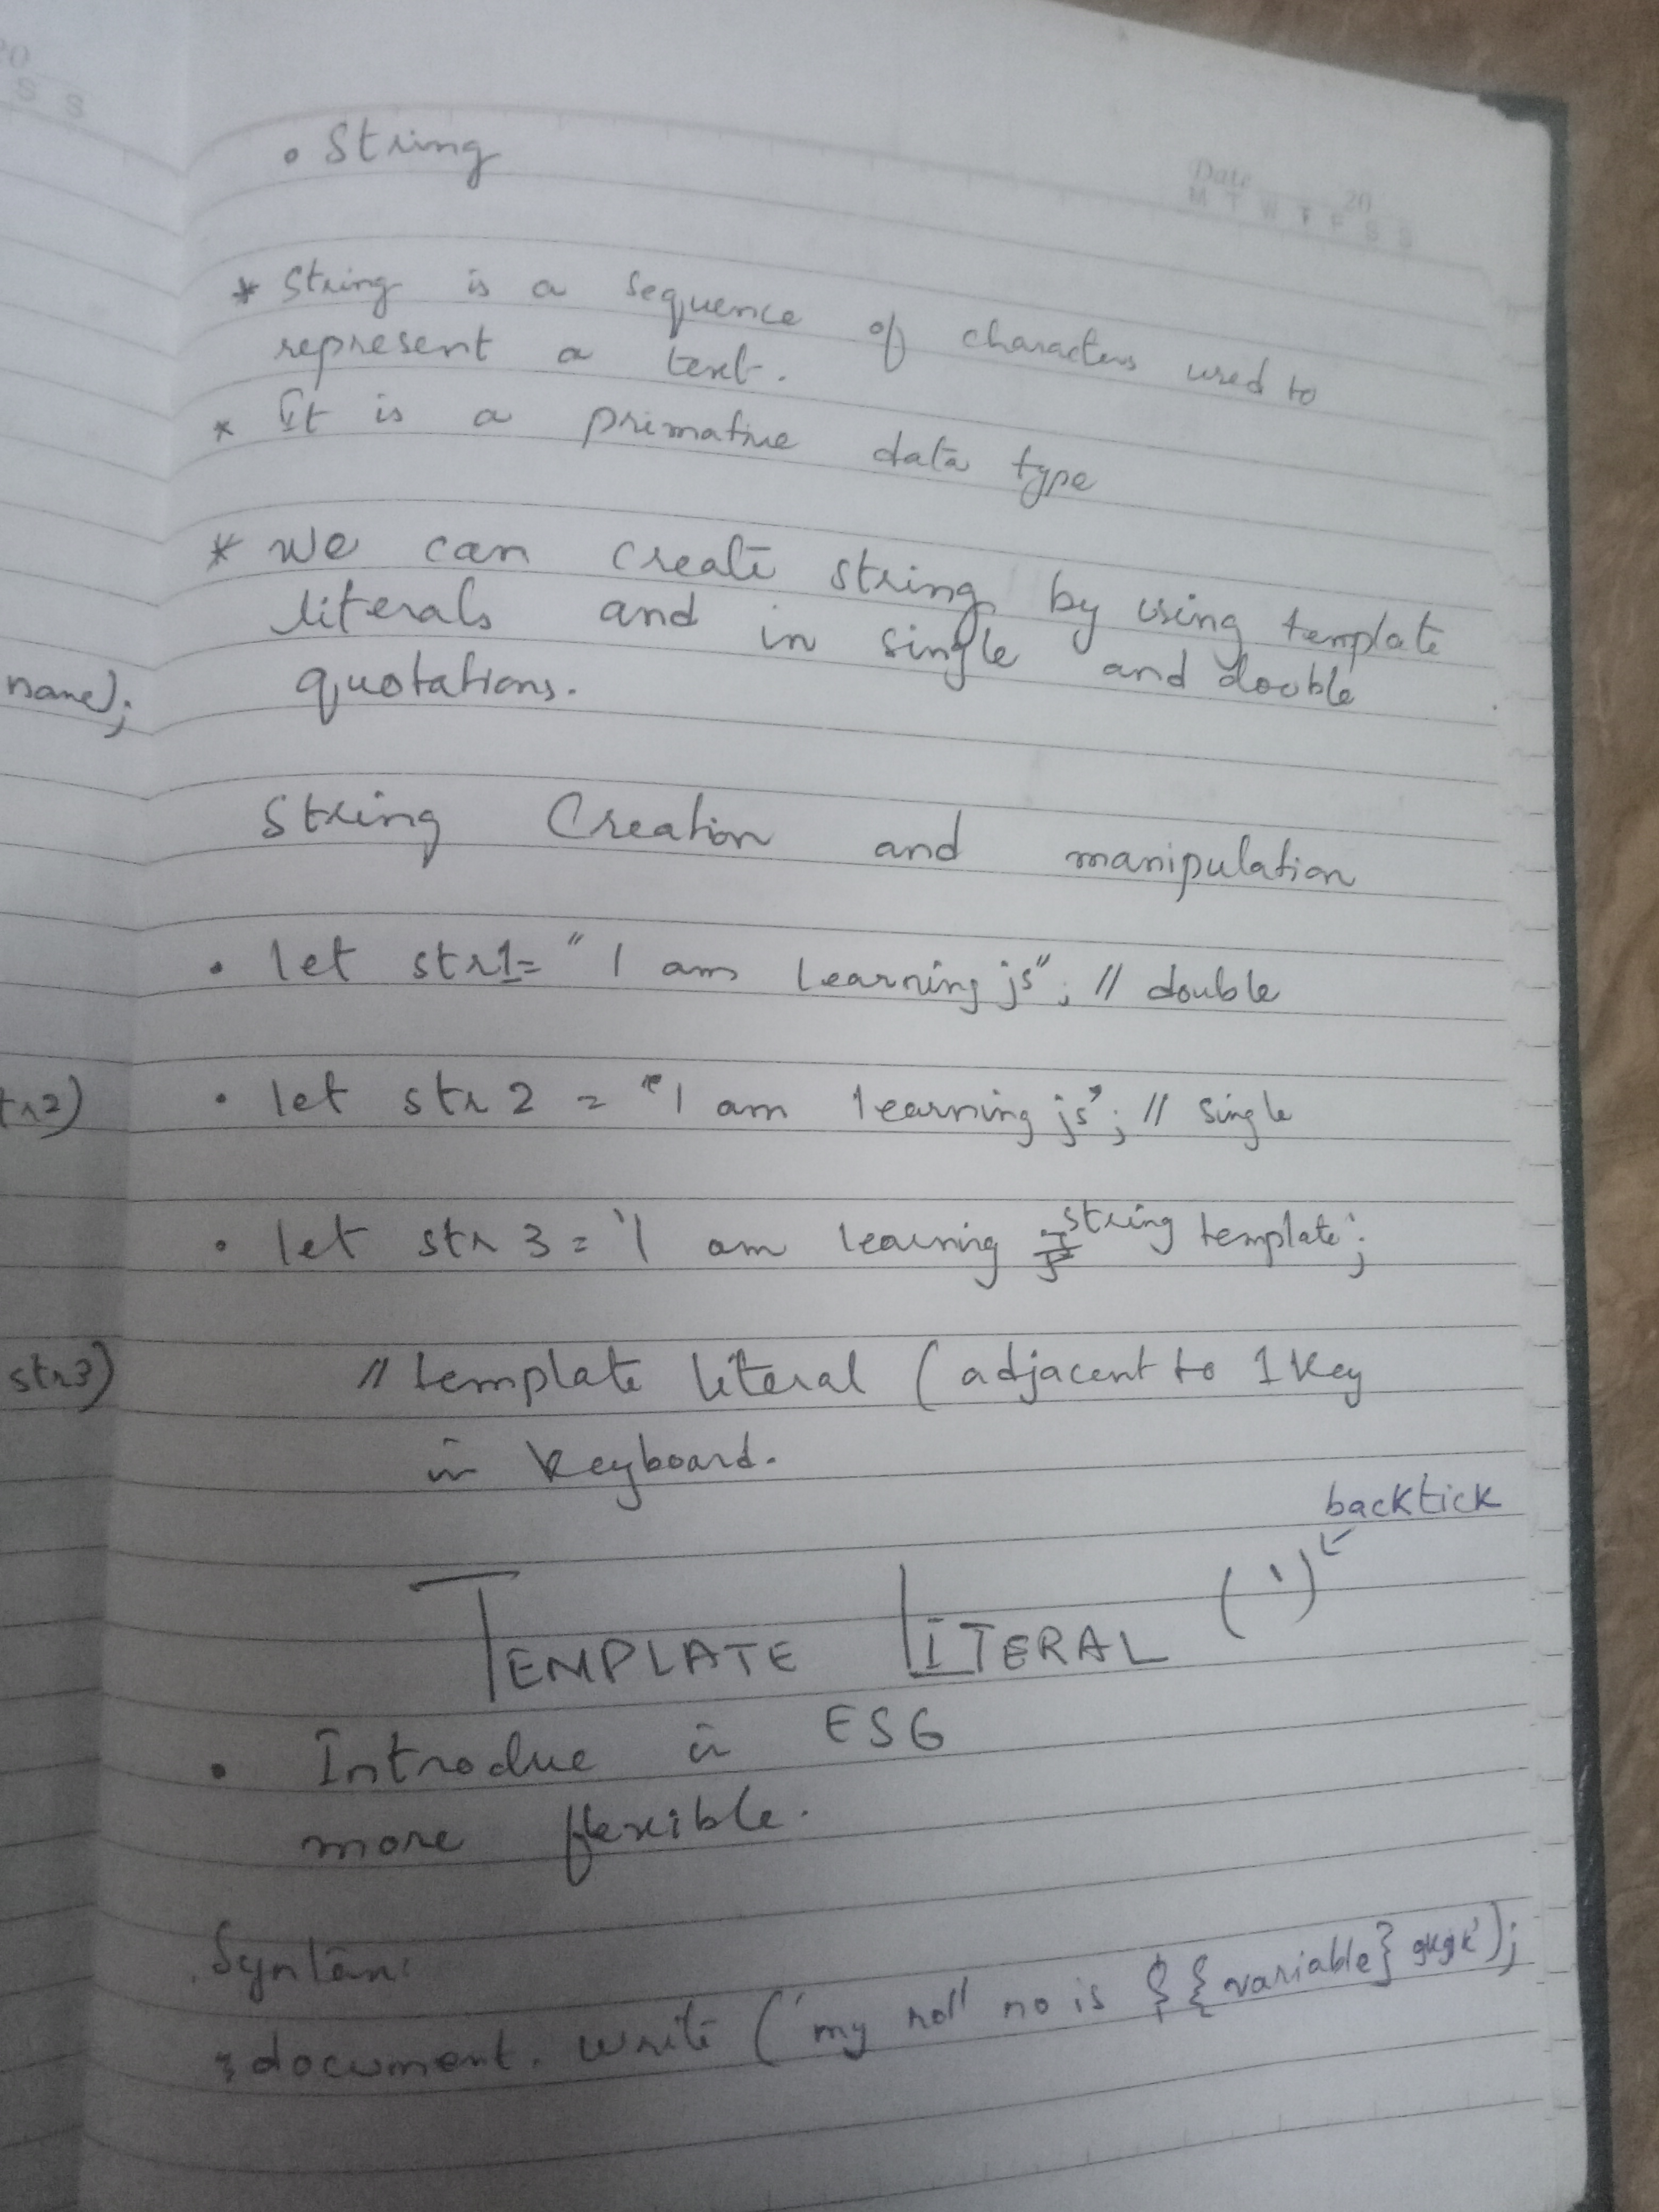 20
S S
Date 20
M T W T F S S
• String
* String is a sequence of characters used to
represent a text.
* It is a primative data type
* we can create string by using template
literals and in single and double
quotations.
name);
String Creation and manipulation
• let str1= " I am learning js"; // double
tr2)
• let str2 = 'I am learning js'; // single
• let str3 = `I am learning string template`;
str3)
// template literal (adjacent to 1 key
in keyboard.
backtick
TEMPLATE LITERAL (`)
• Introdue in ES6
more flexible.
Syntax:
document. write (`my roll no is ${variable} gkgk`);